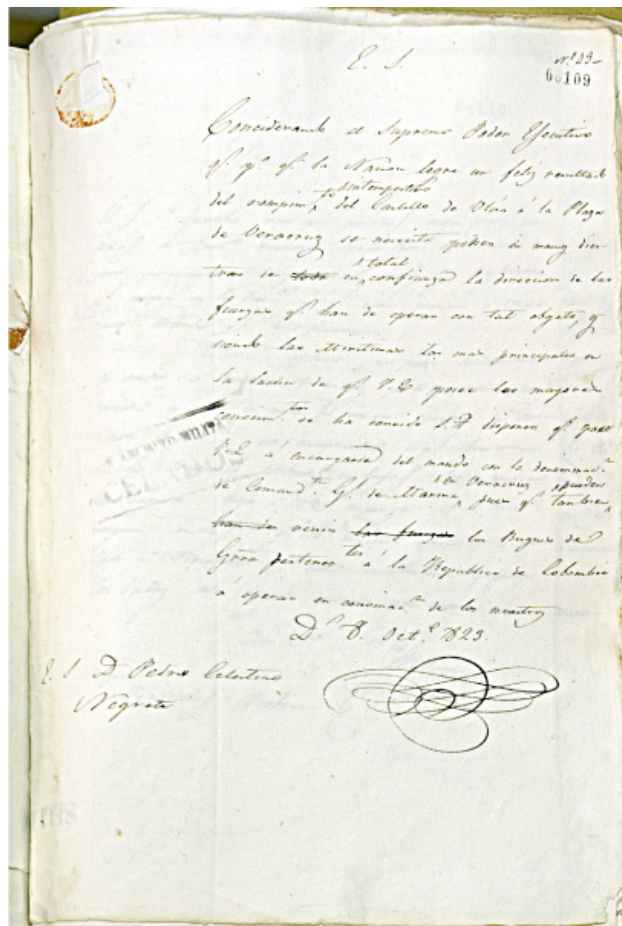 E. S.
Nº 49
00109
Conciderando el Supremo Poder Ejecutivo
qe. pa. qe. la Nacion logre un feliz resultado
intempestivo
del rompimto. del Castillo de Ulúa á la Plaza
de Veracruz se necesita poner en manos dies-
total
tras de toda su confianza la direccion de las
fuerzas qe. han de operar con tal obgeto, y
siendo las Maritimas las mas principales en
la lucha de qe. V.E. posee los mayores
conocimtos. se ha servido S.A. disponer qe. pase
V.E. á encargarse del mando con la denominacn.
de Veracruz pueden
de Comandte. Gl. de Marina, pues qe. tambien
han de venir las fuerzas los Buques de
Grra pertenectes. á la Republica de Colombia
á operar en convinacn. de los nuestros
D. 8. Octe. 1823.
E. S. D. Pedro Celestino
Negrete
ARCHIVO MILITAR